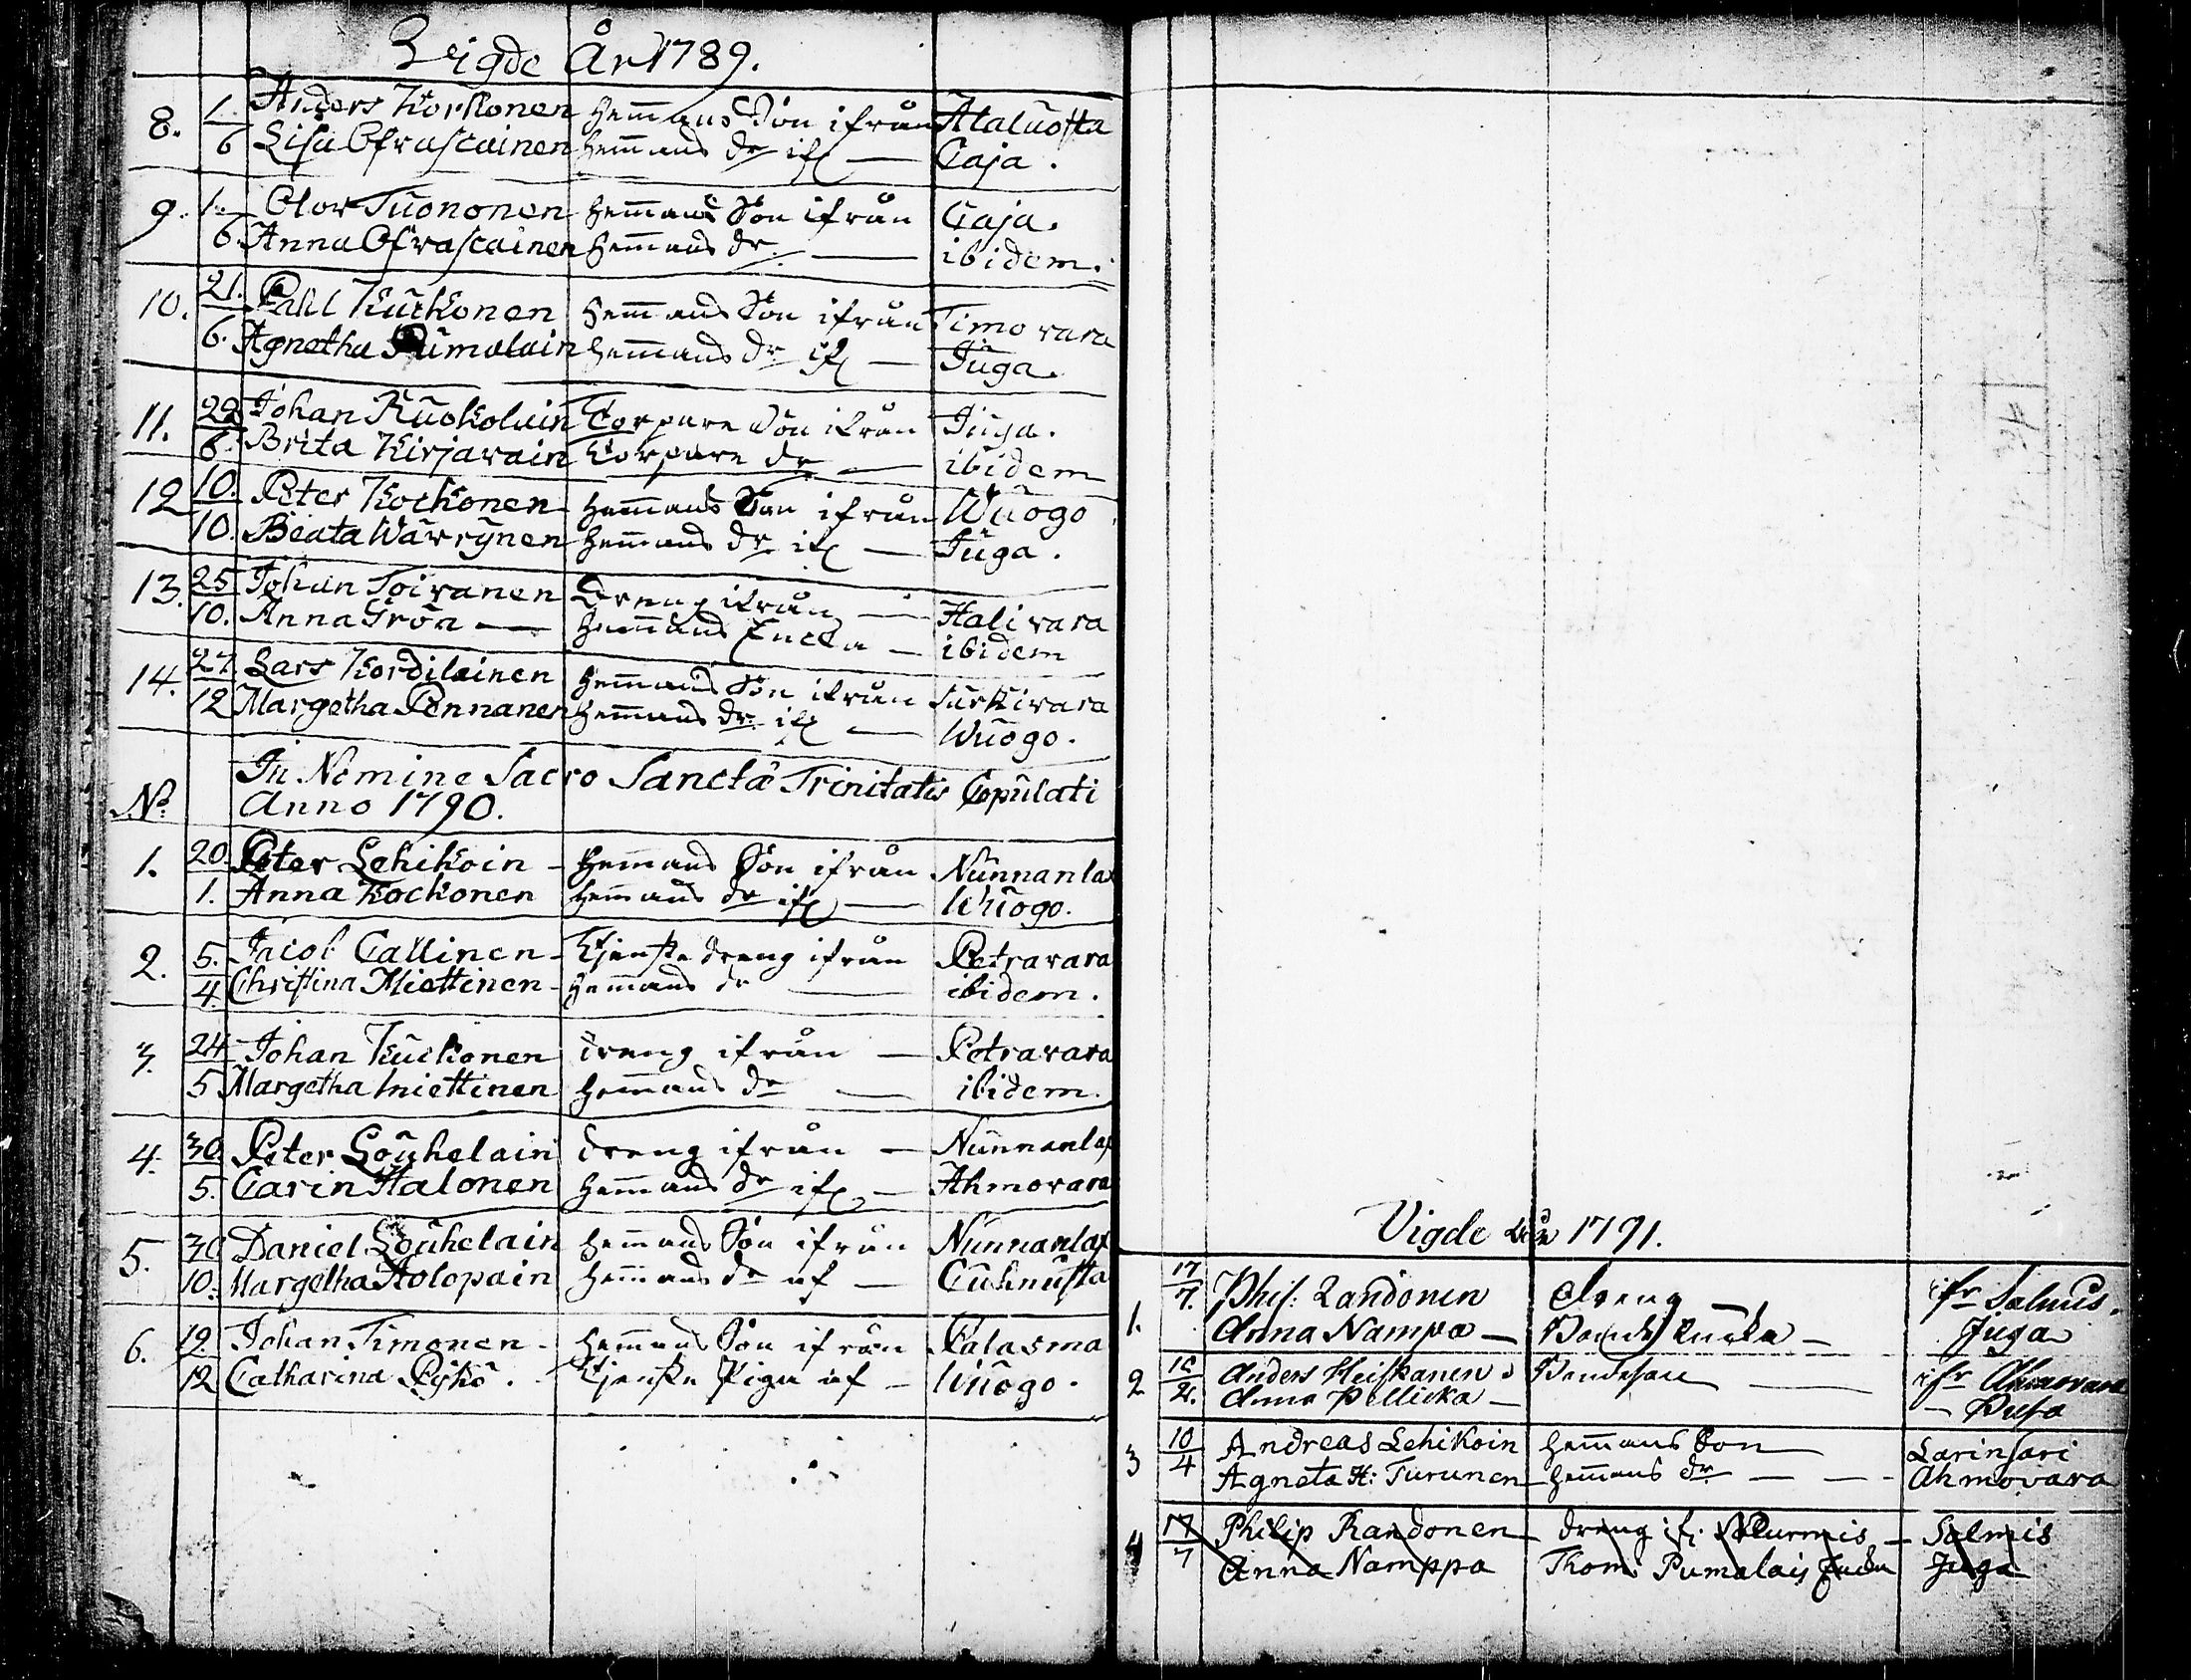 Vigde År 1789.
8. 1. Anders Korhonen Hemmans Son ifrån Ataluosta
6 Lisa Ofvascainen Hemmans dr if. — Caja.
9. 1. Olov Tuononen Hemmans Son ifrån Caja.
6. Anna Ofvascainen Hemmans dr — ibidem.
10. 21. Pahl Kuckonen Hemmans Son ifrån Timovara
6. Agnetha Pumalain Hemmans dr if. — Juga.
11. 29 Johan Ruokolain Torpare Son ifrån Juga.
6. Brita Kirjavain Torpare dr — ibidem
12 10. Peter Kockonen Hemmans Son ifrån Wuogo
10. Beata Wäyrynen Hemmans dr if. — Juga.
13. 25 Johan Toivanen Dreng ifrån — Halivara
10. Anna Grön — Hemmans Encka — ibidem
14. 27. Lars Kordilainen Hemmans Son ifrån Turkivara
12 Margetha Pennanen Hemmans dr if. — Wuogo.
In Nomine Sacro Sanctæ Trinitatis Copulati
No Anno 1790.
1. 20. Peter Lehikoin - Hemmans Son ifrån Nunnanlax
1. Anna Kockonen Hemmans dr if. — Wuogo.
2. 5. Jacob Callinen - Tjenste dreng ifrån Petravara
4. Christina Miettinen - Hemmans dr — ibidem.
3. 24 Johan Kuckonen dreng ifrån — Petravara
5 Margetha Miettinen Hemmans dr — ibidem.
4. 30 Peter Louhelain dreng ifrån — Nunnanlax
5. Carin Halonen Hemmans dr if. — Ahmovara
5. 30 Daniel Louhelain Hemmans Son ifrån Nunnanlax
10. Margetha Holopain Hemmans dr af — Cuhnusta
6. 19. Johan Timonen - Hemmans Son ifrån Palasma
12 Catharina Pykö. Tjenste Piga af — Wuogo.
Vigde År 1791.
1. 17 Phil: Randonen Dreng — ifr Salmis.
7. Anna Nampa — Bonde Encka — Juga
2 Anders Heiskanen Bondeson — ifr Ahmovara
2. Anna Pellicka — — Pusa
3 10 Andreas Lehikoin Hemmans Son — Larinsari
4 Agneta H: Turunen Hemmans dr — — Ahmovara
4 17 Philip Randonen dreng if. Nurmis — Salmis
7 Anna Namppa Thom. Pumalais Encka Juga